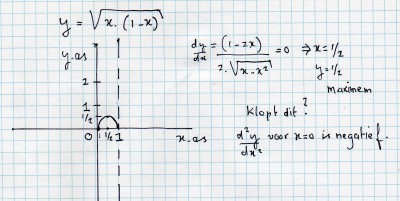 y = √(x · (1-x))
y.as
2
1
1/2
0 1/2 1
x.as
dy/dx = (1-2x) / (2·√(x-x²)) = 0 ⇒ x = 1/2
y = 1/2
maximem
Klopt dit?
d²y/dx² voor x=0 is negatief.